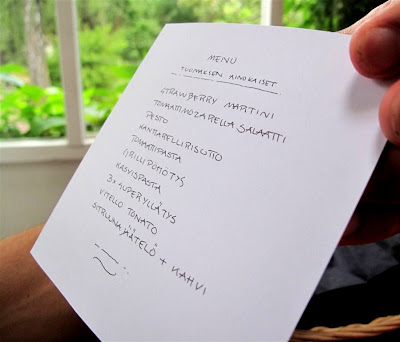 MENU
TUOMAKSEN AINOKAISET
STRAWBERRY MARTINI
TOMAATTIMOZARELLA SALAATTI
PESTO
KANTARELLIRISOTTO
TOMAATTIPASTA
GRILLIPÖHÖTYS
KASVISPASTA
3x SUPERYLLÄTYS
VITELLO TONATO
SITRUUNAJÄÄTELÖ + KAHVI